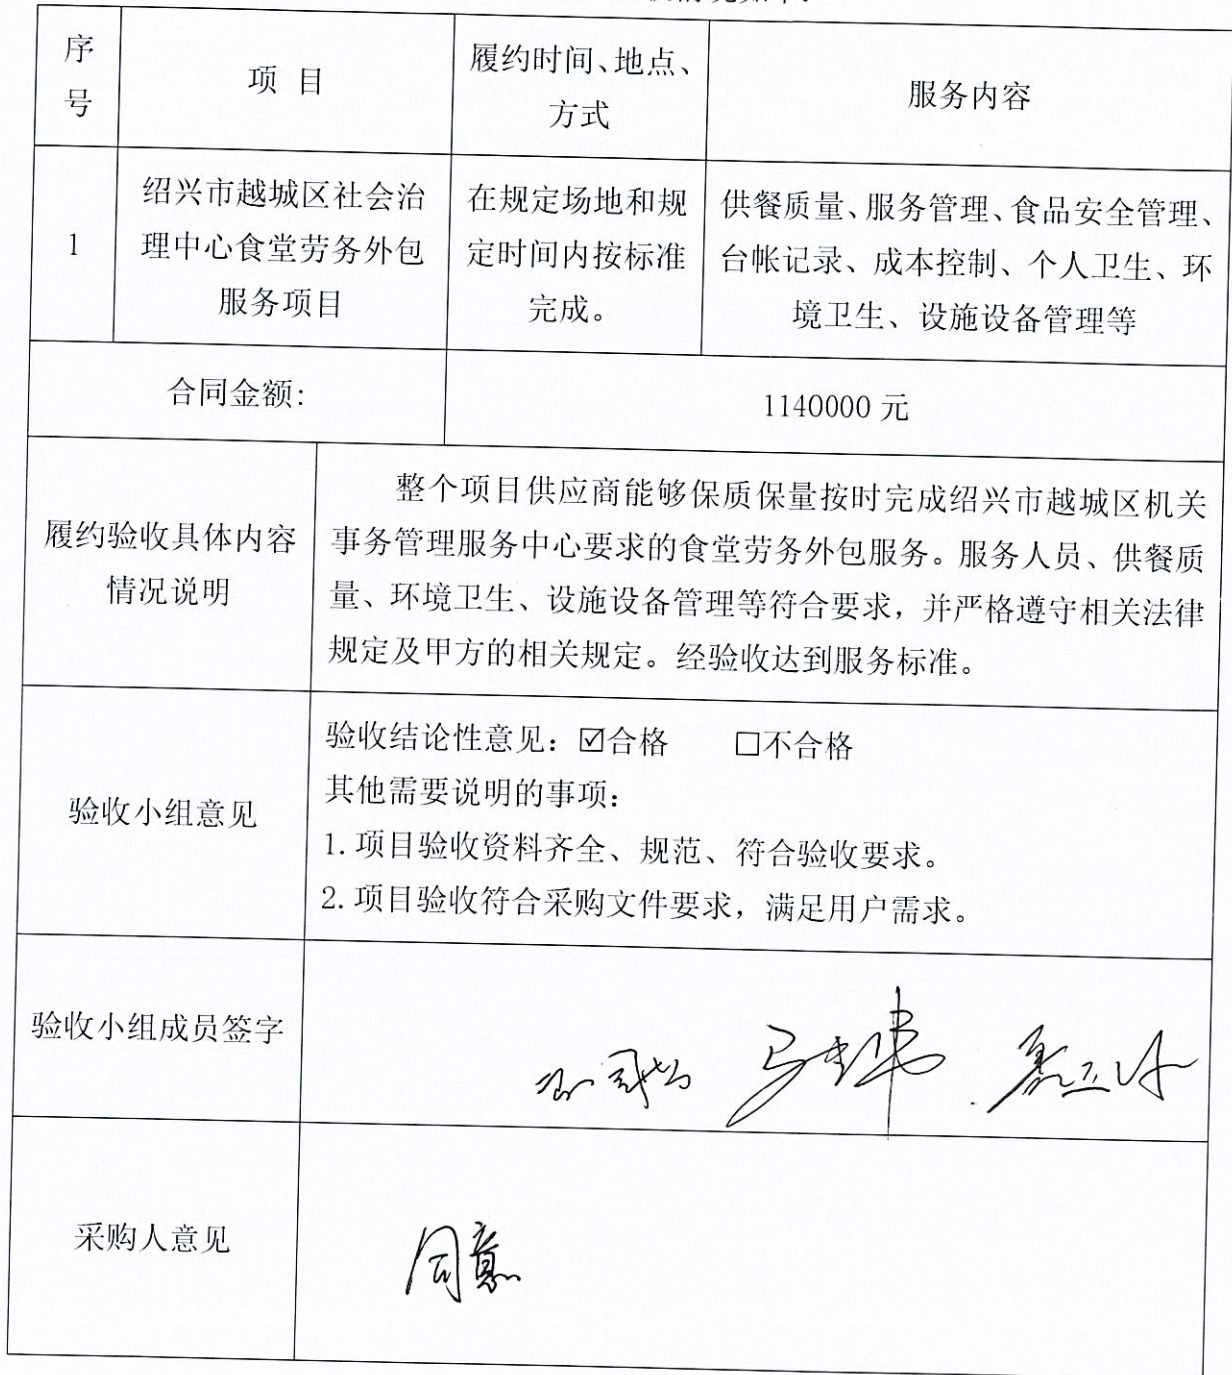 序
号
项 目
履约时间、地点、
方式
服务内容
1
绍兴市越城区社会治
理中心食堂劳务外包
服务项目
在规定场地和规
定时间内按标准
完成。
供餐质量、服务管理、食品安全管理、
台帐记录、成本控制、个人卫生、环
境卫生、设施设备管理等
合同金额:
1140000 元
履约验收具体内容
情况说明
整个项目供应商能够保质保量按时完成绍兴市越城区机关
事务管理服务中心要求的食堂劳务外包服务。服务人员、供餐质
量、环境卫生、设施设备管理等符合要求，并严格遵守相关法律
规定及甲方的相关规定。经验收达到服务标准。
验收小组意见
验收结论性意见：☑合格 □不合格
其他需要说明的事项：
1. 项目验收资料齐全、规范、符合验收要求。
2. 项目验收符合采购文件要求，满足用户需求。
验收小组成员签字
采购人意见
同意